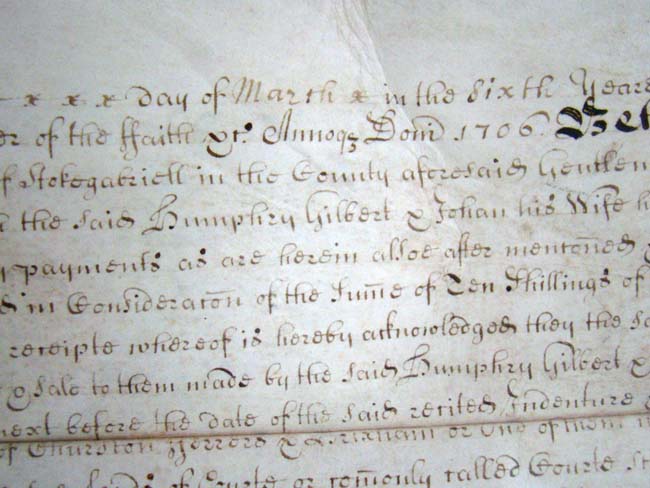 x x x day of March x in the Sixth Yeare
er of the ffaith &c. Annoq; Domi 1706. Bet
of Stokegabriell in the County aforesaid Gentlem
the said Humphry Gilbert & Johan his Wife h
payments as are herein alsoe after mentoned
in Consideracon of the Sume of Ten Shillings of
receipte whereof is hereby acknowledged they the sa
& sale to them made by the said Humphry Gilbert &
next before the date of the said recited Indenture
of Thurston or One of them
of Courte or comonly called Courte